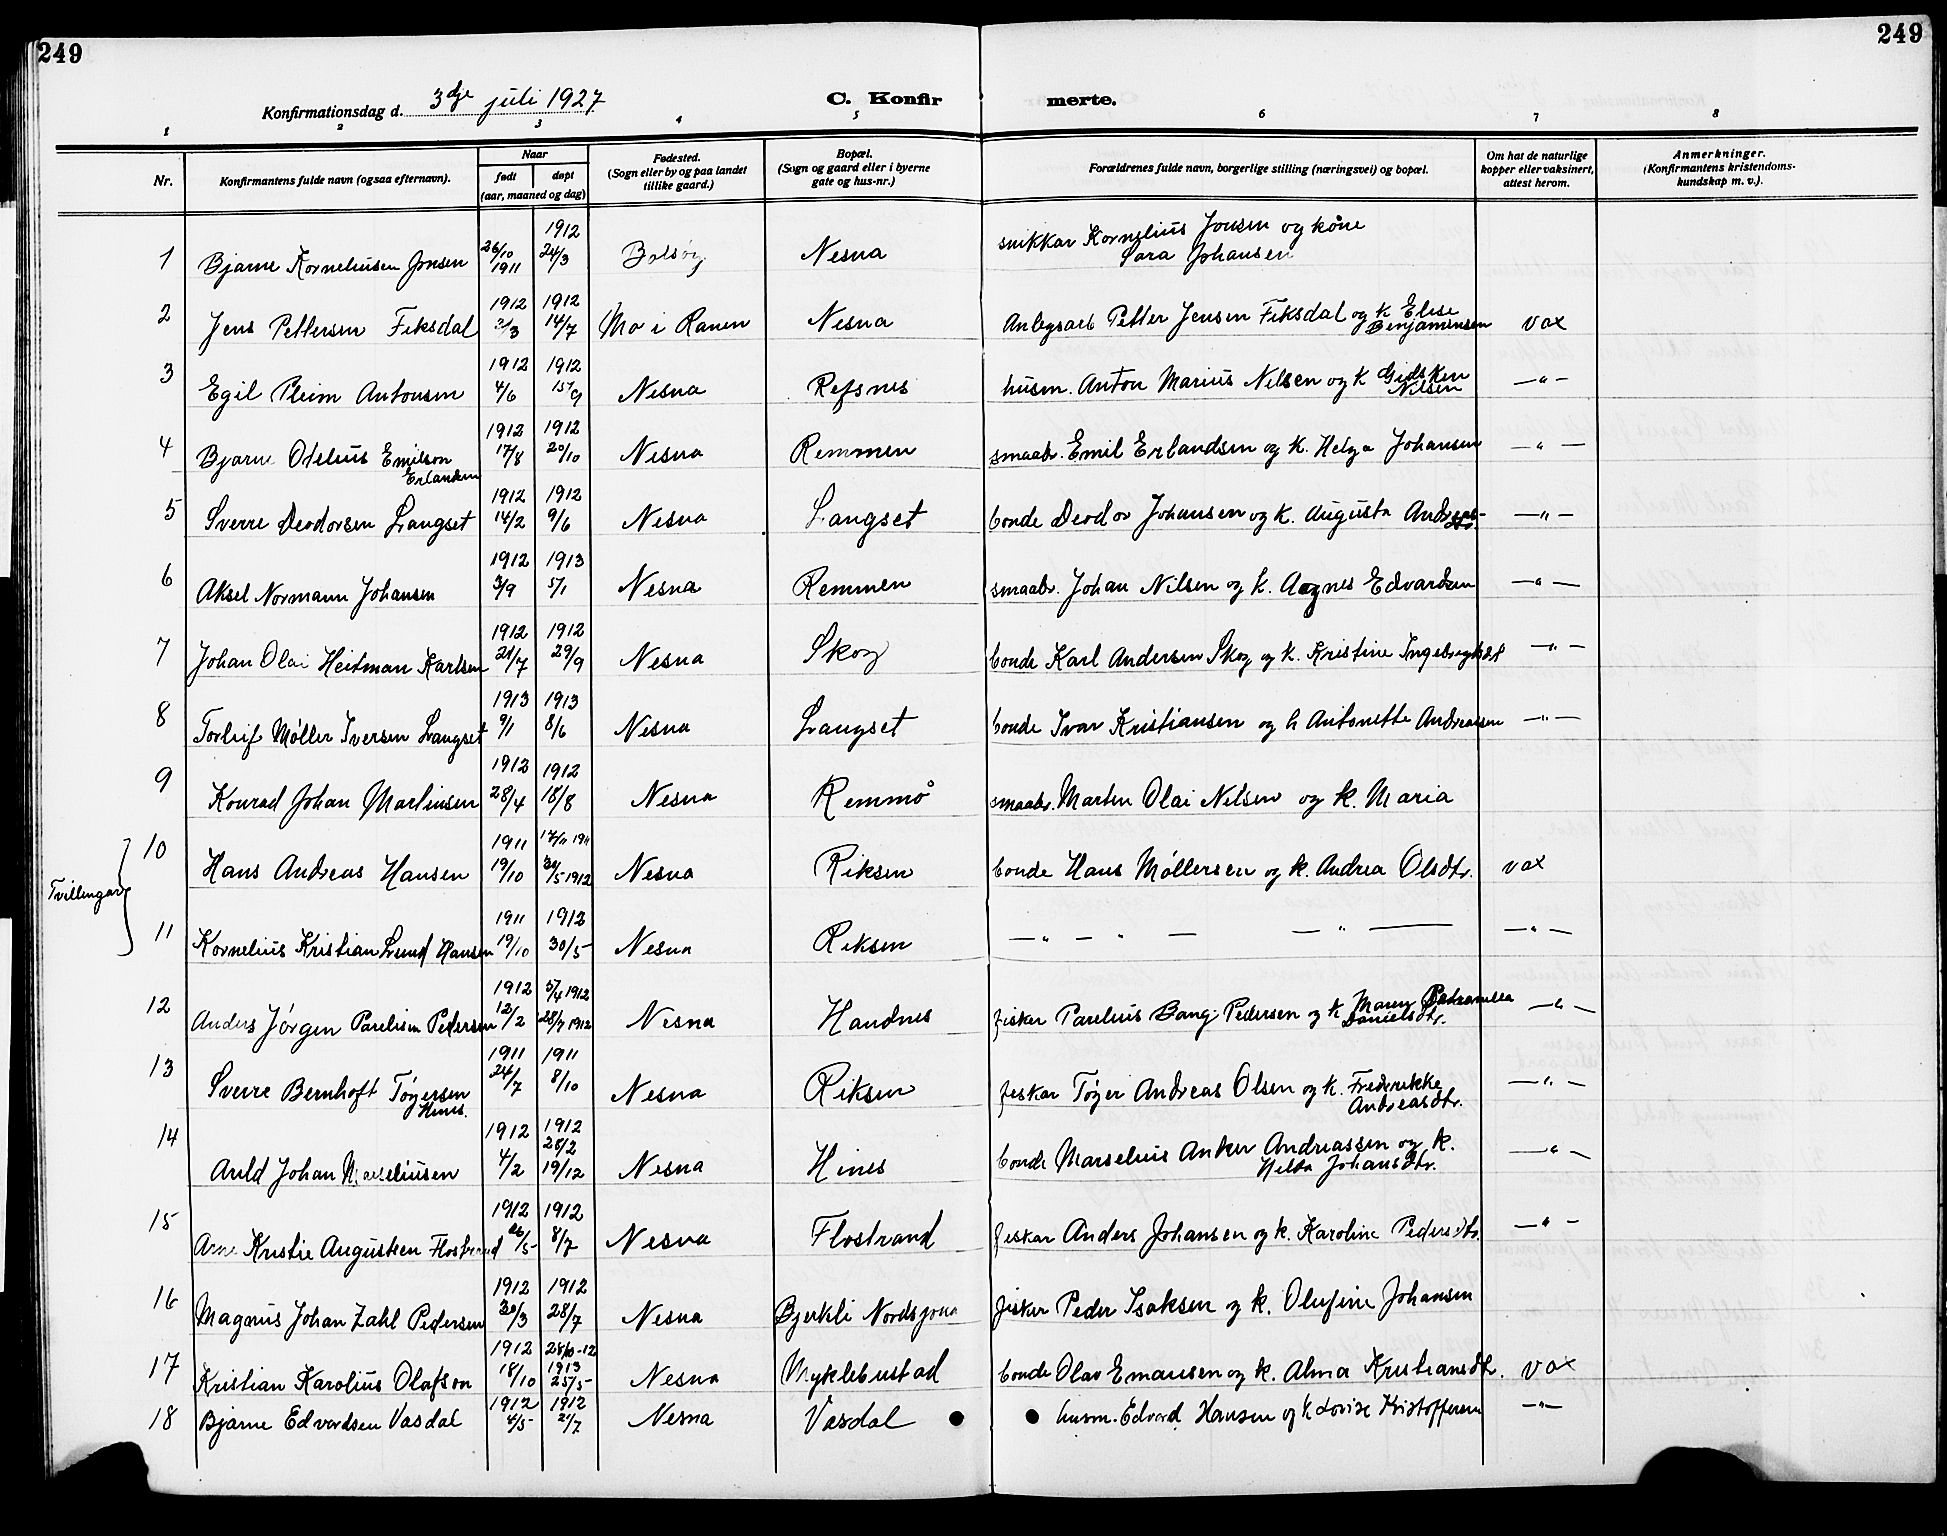 249
249
Konfirmationsdag d. 3dje juli 1927
C. Konfir merte.
1 2 3 4 5 6 7 8
Nr. Konfirmantens fulde navn (ogsaa efternavn). Naar født døpt (aar, maaned og dag) Fødested. (Sogn eller by og paa landet tillike gaard.) Bopæl. (Sogn og gaard eller i byerne gate og hus-nr.) Forældrenes fulde navn, borgerlige stilling (næringsvei) og bopæl. Om hat de naturlige kopper eller vaksinert, attest herom. Anmerkninger. (Konfirmantens kristendoms-kundskap m. v.).
1 Bjarne Korneliusen Jonsen 26/10 1911 1912 24/3 Bolsøy Nesna snikkar Kornelius Jonsen og kone Sara Johansen
2 Jens Pettersen Fiksdal 1912 3/3 1912 14/7 Mo i Ranen Nesna Anlegsarb Petter Jensen Fiksdal og k Elise Benjaminsen vax
3 Egil Pleim Antonsen 1912 4/6 1912 15/9 Nesna Refsnes husm. Anton Marius Nilsen og k Gidsken Nilsen —"—
4 Bjarne Otelius Emilson Erlandsen 1912 17/8 1912 20/10 Nesna Remmen smaabr. Emil Erlandsen og k. Helga Johansen —"—
5 Sverre Deodorsen Langset 1912 14/2 1912 9/6 Nesna Langset bonde Deodor Johansen og k. Augusta Andreas- —"—
6 Aksel Normann Johansen 1912 3/9 1913 5/1 Nesna Remmen smaabr. Johan Nilsen og k. Agnes Edvardsen —"—
7 Johan Olai Heitman Karlsen 1912 21/7 1912 29/9 Nesna Skog bonde Karl Andersen Skog og k. Kristine —"—
8 Torleif Møller Iversen Langset 1913 9/1 1913 8/6 Nesna Langset bonde Ivar Kristiansen og h Antonette Andreassen —"—
9 Konrad Johan Martinsen 1912 28/4 1912 18/8 Nesna Remmø smaabr. Martin Olai Nilsen og k. Maria
Tvillingar
10 Hans Andreas Hansen 1911 19/10 17/11 1911 30/5 1912 Nesna Riksen bonde Hans Møllersen og k. Andrea Olsdtr. vax
11 Kornelius Kristian Lund Hansen 1911 19/10 1912 30/5 Nesna Riksen —"— " — — " — —"—
12 Anders Jørgen Pareliusen Pedersen 1912 12/2 5/4 1912 28/7 1912 Nesna Handnes fisker Parelius Bang Pedersen og k Maren Danielsdtr. —"—
13 Sverre Bernhoft Tøgersen Hines. 1911 24/7 1911 8/10 Nesna Riksen fiskar Tøger Andreas Olsen og k. Frederikke Andreasdtr. —"—
14 Arild Johan Marseliusen 1912 4/2 1912 28/2 19/12 Nesna Hines bonde Marselius Anker Andreassen og k. Johansdtr. —"—
15 Arne Augustsen Flostrand 1912 26/5 1912 8/7 Nesna Flostrand fiskar Anders Johansen og k. Karoline Pedersdtr. —"—
16 Magnus Johan Zahl Pedersen 1912 30/3 1912 28/7 Nesna Bjerkli Nordsjona fisker Peder Isaksen og k. Olufine Johansen
17 Kristian Karolius Olafson 1912 18/10 28/10-12 1913 25/5 Nesna Myklebustad bonde Olav Emausen og k. Alma Kristiansdtr. vax
18 Bjarne Edvardsen Vasdal 1912 4/5 1912 21/7 Nesna Vasdal husm. Edvard Hansen og k Lovise Kristoffersen —"—